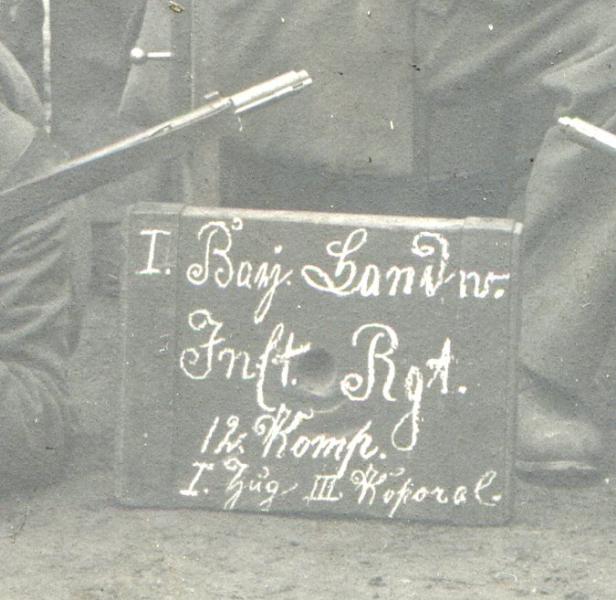 I. Bay. Landw.
Inft. Rgt.
12. Komp.
I. Zug III. Koporal.